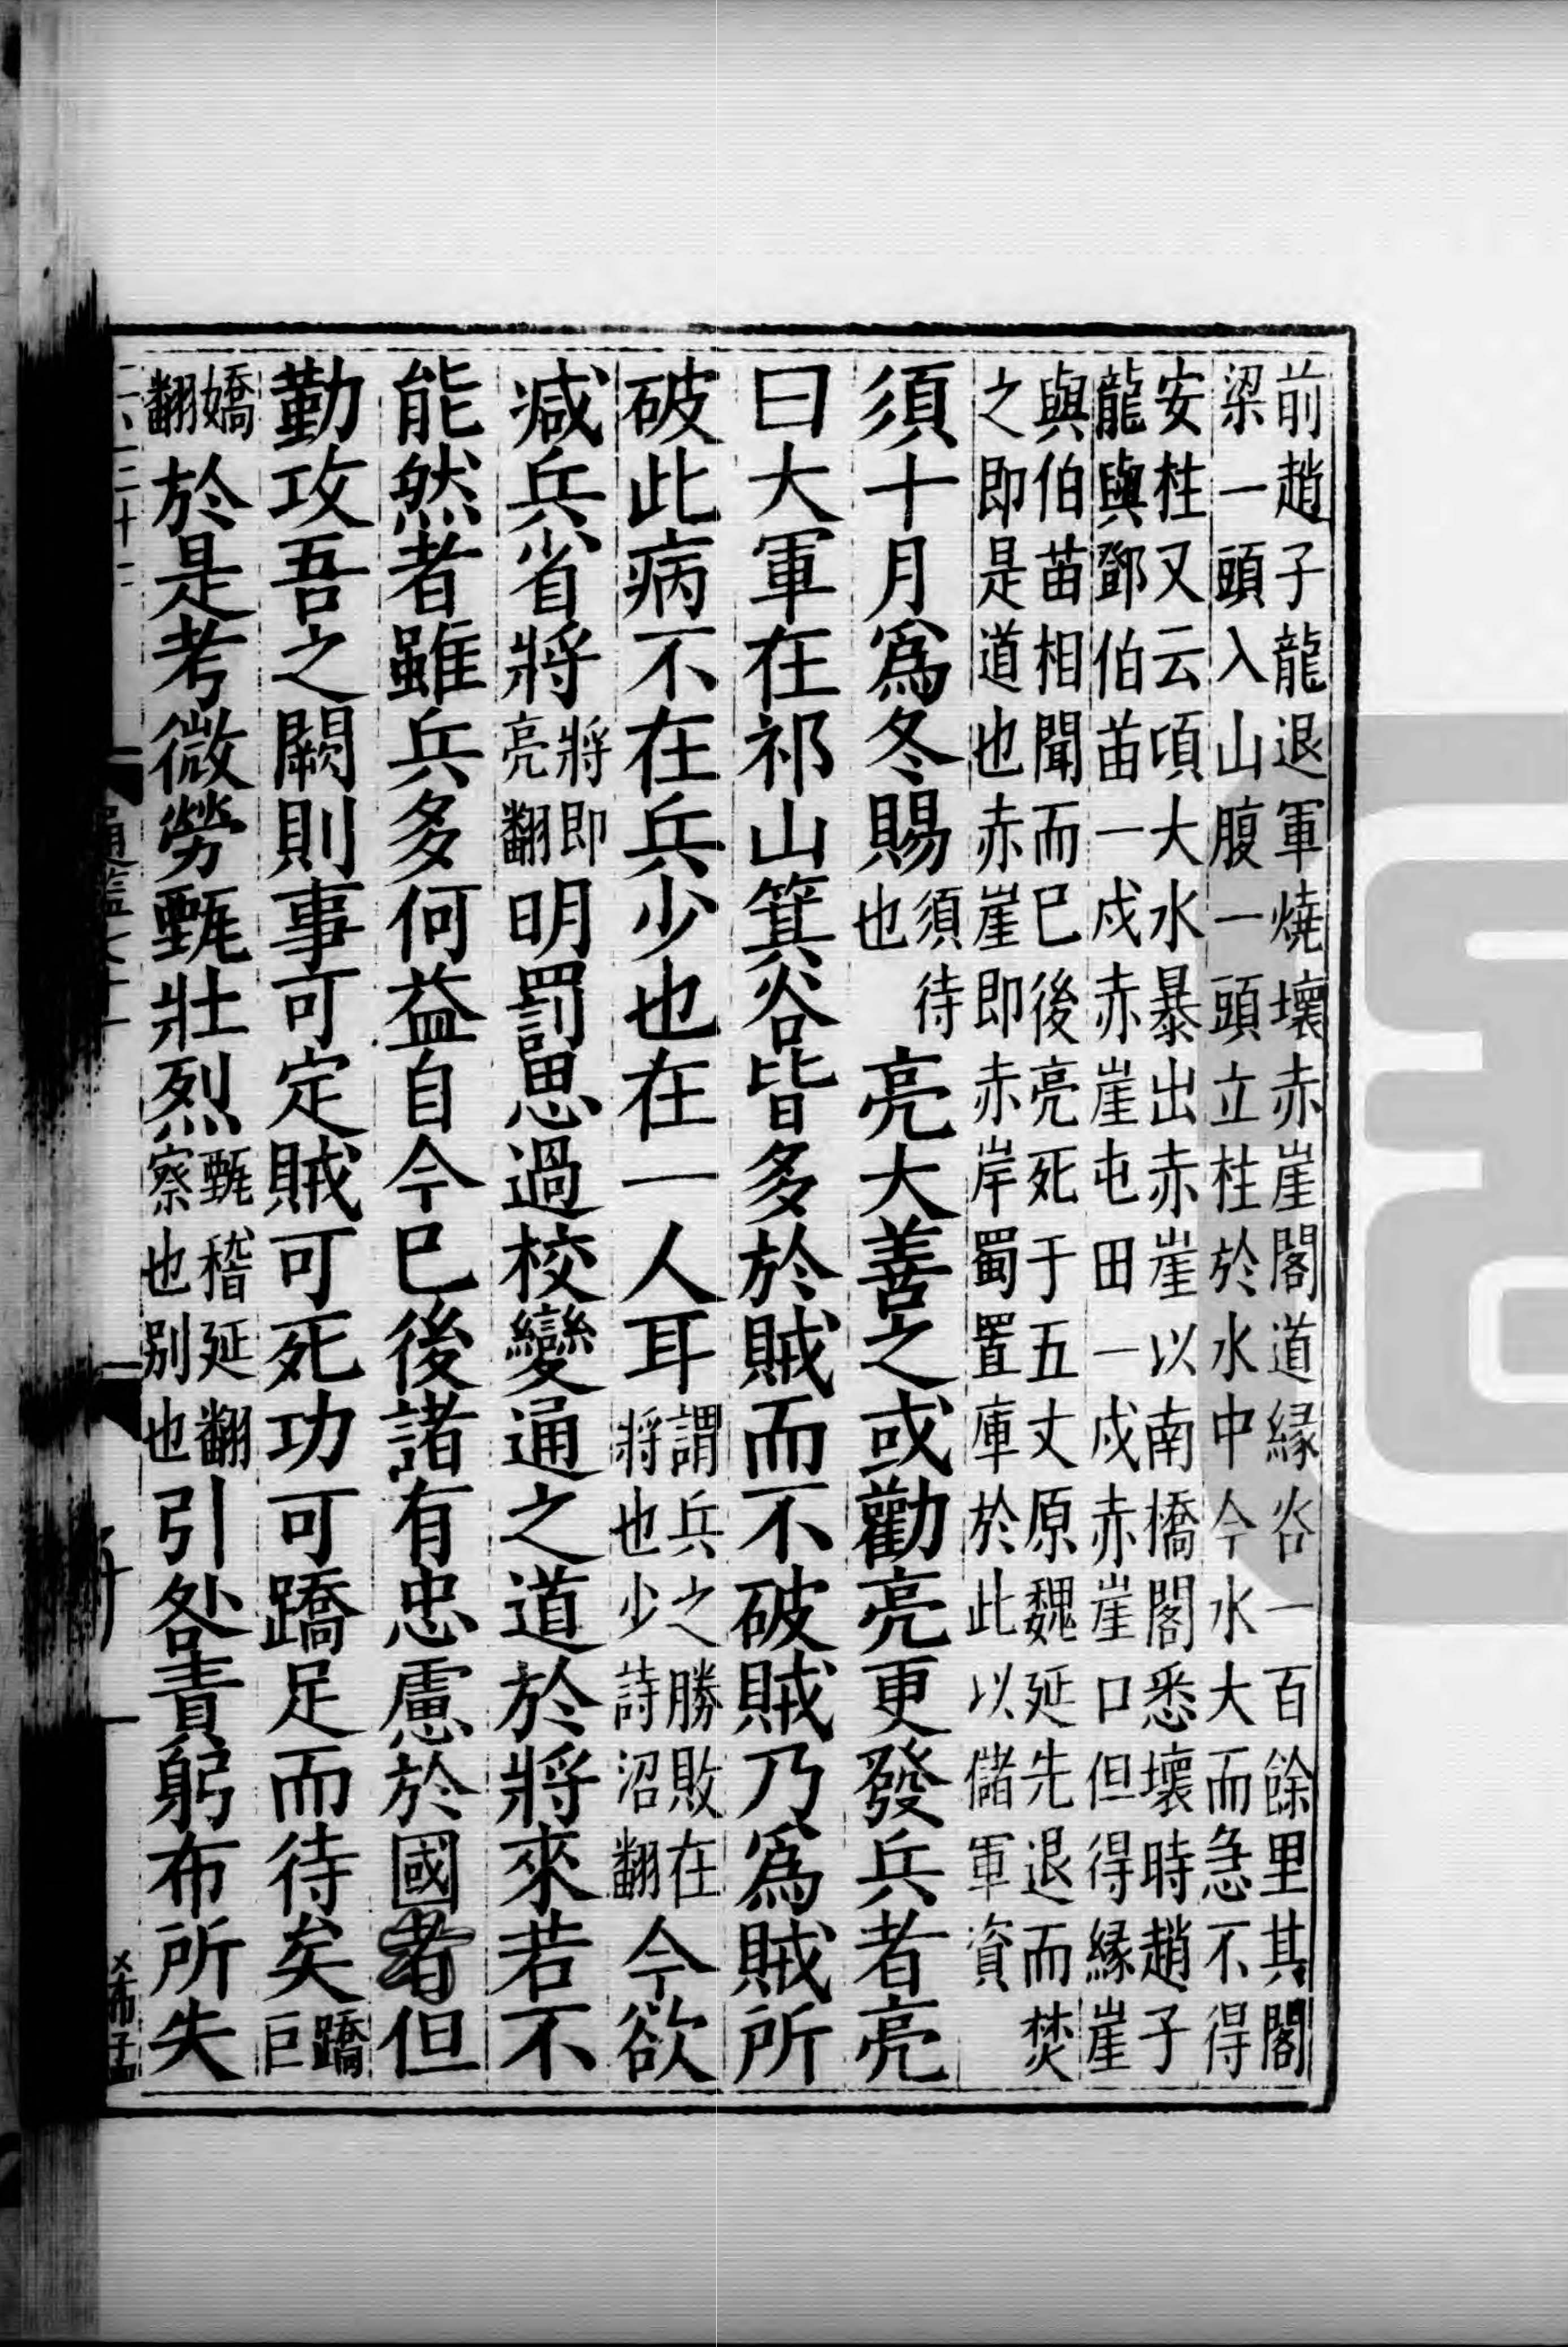 前趙子龍退軍燒壞赤崖閣道緣谷一百餘里其閣
梁一頭入山腹一頭立柱於水中今水大而急不得
安柱又云頃大水暴出赤崖以南橋閣悉壞時趙子
龍與鄧伯苗一戍赤崖屯田一戍赤崖口但得緣崖
與伯苗相聞而巳後亮死于五丈原魏延先退而焚
之即是道也赤崖即赤岸蜀置庫於此以儲軍資
須十月爲冬賜須待也亮大善之或勸亮更發兵者亮
曰大軍在祁山箕谷皆多於賊而不破賊乃爲賊所
破此病不在兵少也在一人耳謂兵之勝敗在將也少詩沼翻今欲
減兵省將將即亮翻明罰思過校變通之道於將來若不
能然者雖兵多何益自今巳後諸有忠慮於國者但
勤攻吾之闕則事可定賊可死功可蹻足而待矣蹻巨
嬌翻於是考微勞甄壯烈甄稽延翻察也別也引咎責躬布所失